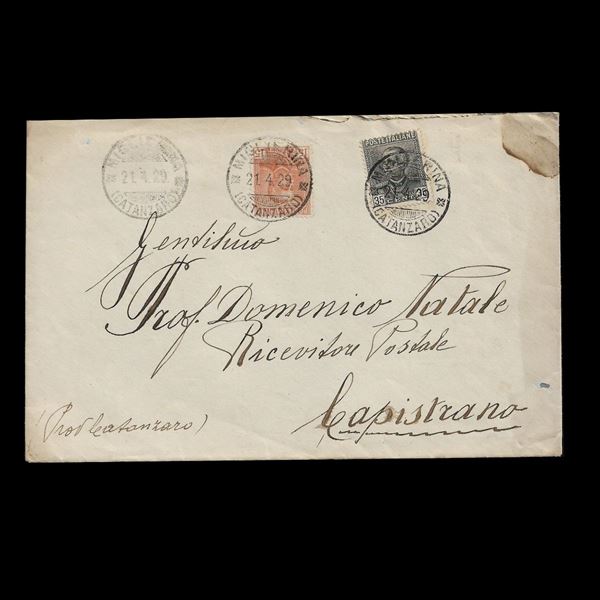 MIGLIERINA
21.4.29
(CATANZARO)
MIGLIERINA
21.4.29
(CATANZARO)
POSTE ITALIANE
35
35
21.4.29
(CATANZARO)
Gentilmo
Prof. Domenico Natale
Ricevitore Postale
Capistrano
(Prov Catanzaro)